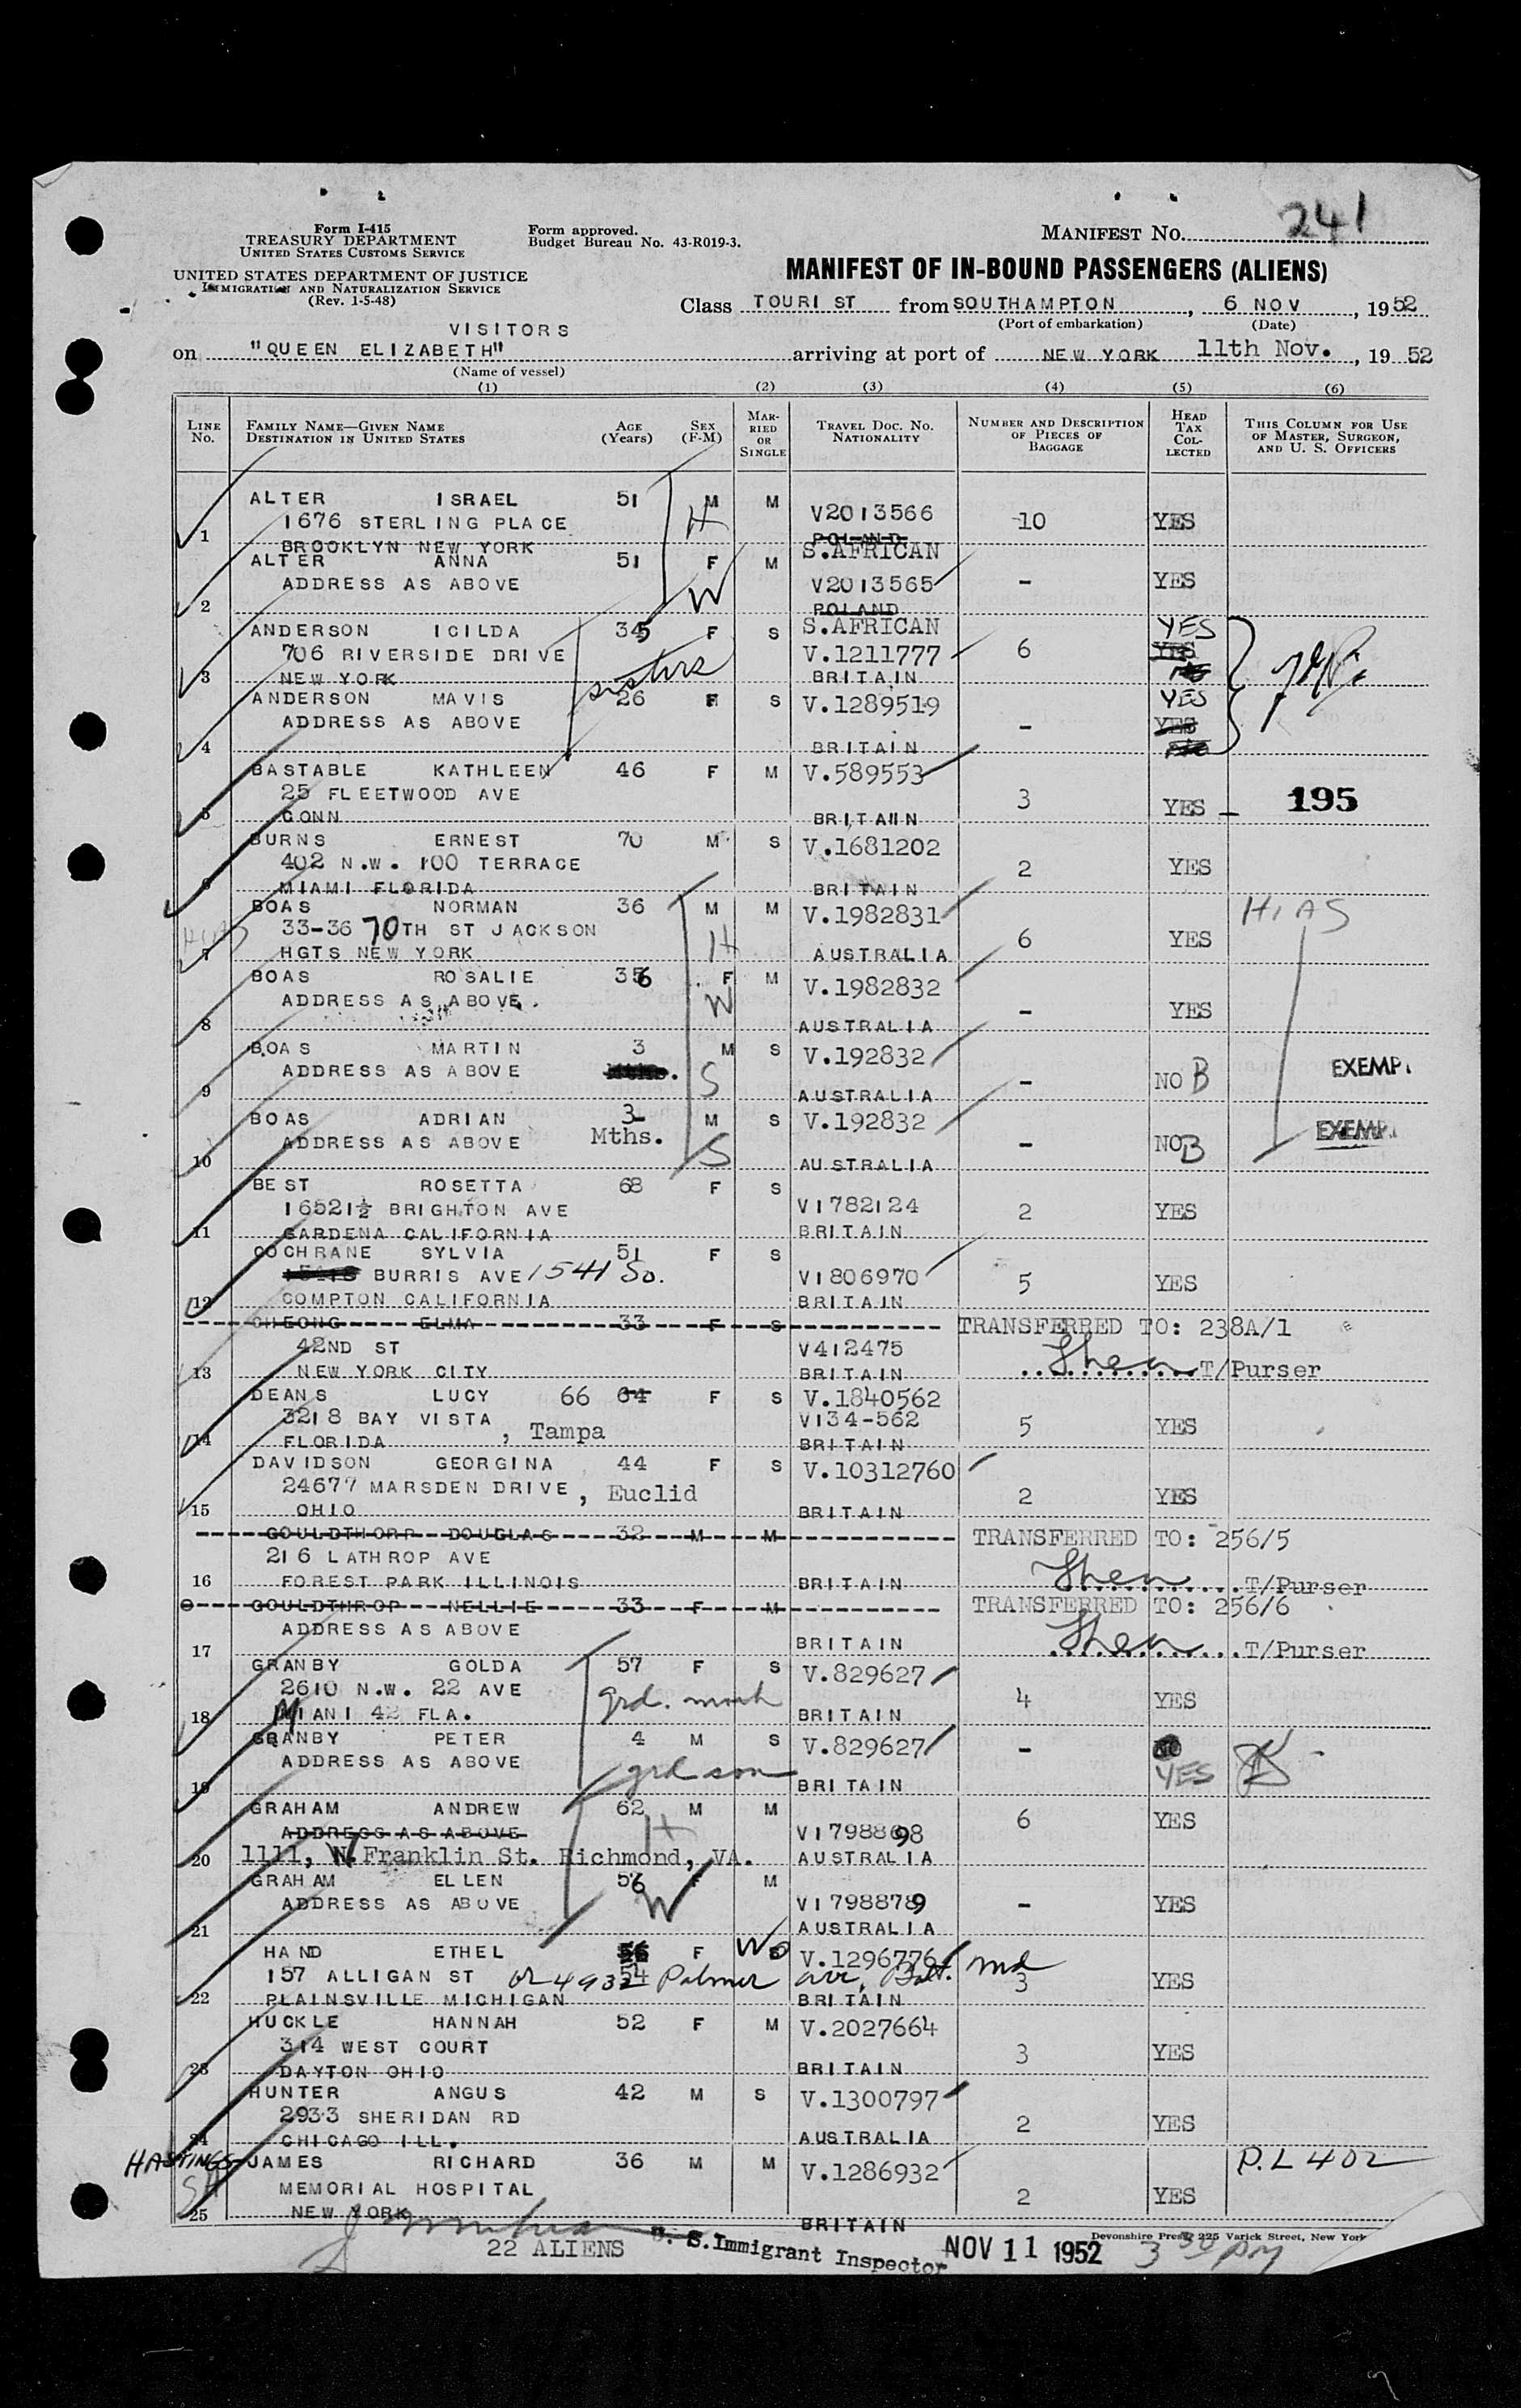 241
Form I-415
TREASURY DEPARTMENT
UNITED STATES CUSTOMS SERVICE
UNITED STATES DEPARTMENT OF JUSTICE
IMMIGRATION AND NATURALIZATION SERVICE
(Rev. 1-5-48)
Form approved.
Budget Bureau No. 43-R019-3.
MANIFEST No.
MANIFEST OF IN-BOUND PASSENGERS (ALIENS)
Class TOURIST from SOUTHAMPTON, 6 NOV, 1952
(Port of embarkation) (Date)
VISITORS
on "QUEEN ELIZABETH" arriving at port of NEW YORK 11th Nov., 19 52
(Name of vessel)
(1) (2) (3) (4) (5) (6)
LINE No. FAMILY NAME—GIVEN NAME DESTINATION IN UNITED STATES AGE (Years) SEX (F-M) MARRIED OR SINGLE TRAVEL DOC. NO. NATIONALITY NUMBER AND DESCRIPTION OF PIECES OF BAGGAGE HEAD TAX COLLECTED THIS COLUMN FOR USE OF MASTER, SURGEON, AND U. S. OFFICERS
ALTER ISRAEL 51 M M V2013566 10 YES
1676 STERLING PLACE H
1 BROOKLYN NEW YORK POLAND S.AFRICAN
ALTER ANNA 51 F M V2013565 - YES
ADDRESS AS ABOVE W
2 POLAND S.AFRICAN
ANDERSON ICILDA 35 F S V.1211777 6 YES YES
706 RIVERSIDE DRIVE sisters
3 NEW YORK BRITAIN
ANDERSON MAVIS 26 F S V.1289519 - YES YES
ADDRESS AS ABOVE
4 BRITAIN
BASTABLE KATHLEEN 46 F M V.589553 3 YES - 195
25 FLEETWOOD AVE
5 CONN BRITAIN
BURNS ERNEST 70 M S V.1681202 2 YES
402 N.W. 100 TERRACE
6 MIAMI FLORIDA BRITAIN
BOAS NORMAN 36 M M V.1982831 6 YES HIAS
33-36 70TH ST JACKSON H
7 HGTS NEW YORK AUSTRALIA
BOAS ROSALIE 36 F M V.1982832 - YES
ADDRESS AS ABOVE. W
8 AUSTRALIA
BOAS MARTIN 3 M S V.192832 - NO B EXEMPT
ADDRESS AS ABOVE Mths. S
9 AUSTRALIA
BOAS ADRIAN 3 M S V.192832 - NO B EXEMPT
ADDRESS AS ABOVE Mths. S
10 AUSTRALIA
BEST ROSETTA 68 F S V1782124 2 YES
16521½ BRIGHTON AVE
11 GARDENA CALIFORNIA BRITAIN
COCHRANE SYLVIA 51 F S V1806970 5 YES
BURRIS AVE 1541 So.
12 COMPTON CALIFORNIA BRITAIN
CHEONG ELMA 33 F S TRANSFERRED TO: 238A/1
42ND ST V412475
13 NEW YORK CITY BRITAIN T/Purser
DEANS LUCY 66 64 F S V.1840562
3218 BAY VISTA V134-562 5 YES
14 FLORIDA, Tampa BRITAIN
DAVIDSON GEORGINA 44 F S V.10312760 2 YES
24677 MARSDEN DRIVE, Euclid
15 OHIO BRITAIN
GOULDTHORP DOUGLAS 32 M M TRANSFERRED TO: 256/5
216 LATHROP AVE
16 FOREST PARK ILLINOIS BRITAIN T/Purser
GOULDTHROP NELLIE 33 F M TRANSFERRED TO: 256/6
ADDRESS AS ABOVE
17 BRITAIN T/Purser
GRANBY GOLDA 57 F S V.829627 4 YES
2610 N.W. 22 AVE grd. moth
18 MIANI 42 FLA. BRITAIN
GRANBY PETER 4 M S V.829627 - NO YES
ADDRESS AS ABOVE grd son
19 BRITAIN
GRAHAM ANDREW 62 M M V1798898 6 YES
ADDRESS AS ABOVE H
20 1111, W. Franklin St. Richmond, VA. AUSTRALIA
GRAHAM ELLEN 56 F M V1798879 - YES
ADDRESS AS ABOVE W
21 AUSTRALIA
HAND ETHEL 56 54 F Wd V.1296776 3 YES
157 ALLIGAN ST or 4932 Palmer ave, Balt. md
22 PLAINSVILLE MICHIGAN BRITAIN
HUCKLE HANNAH 52 F M V.2027664 3 YES
314 WEST COURT
23 DAYTON OHIO BRITAIN
HUNTER ANGUS 42 M S V.1300797 2 YES
2933 SHERIDAN RD
24 CHICAGO ILL. AUSTRALIA
HASTINGS-JAMES RICHARD 36 M M V.1286932 2 YES P.L 402
MEMORIAL HOSPITAL
25 NEW YORK BRITAIN
Devonshire Press, 225 Varick Street, New York
22 ALIENS U. S. Immigrant Inspector NOV 11 1952 3 30 PM